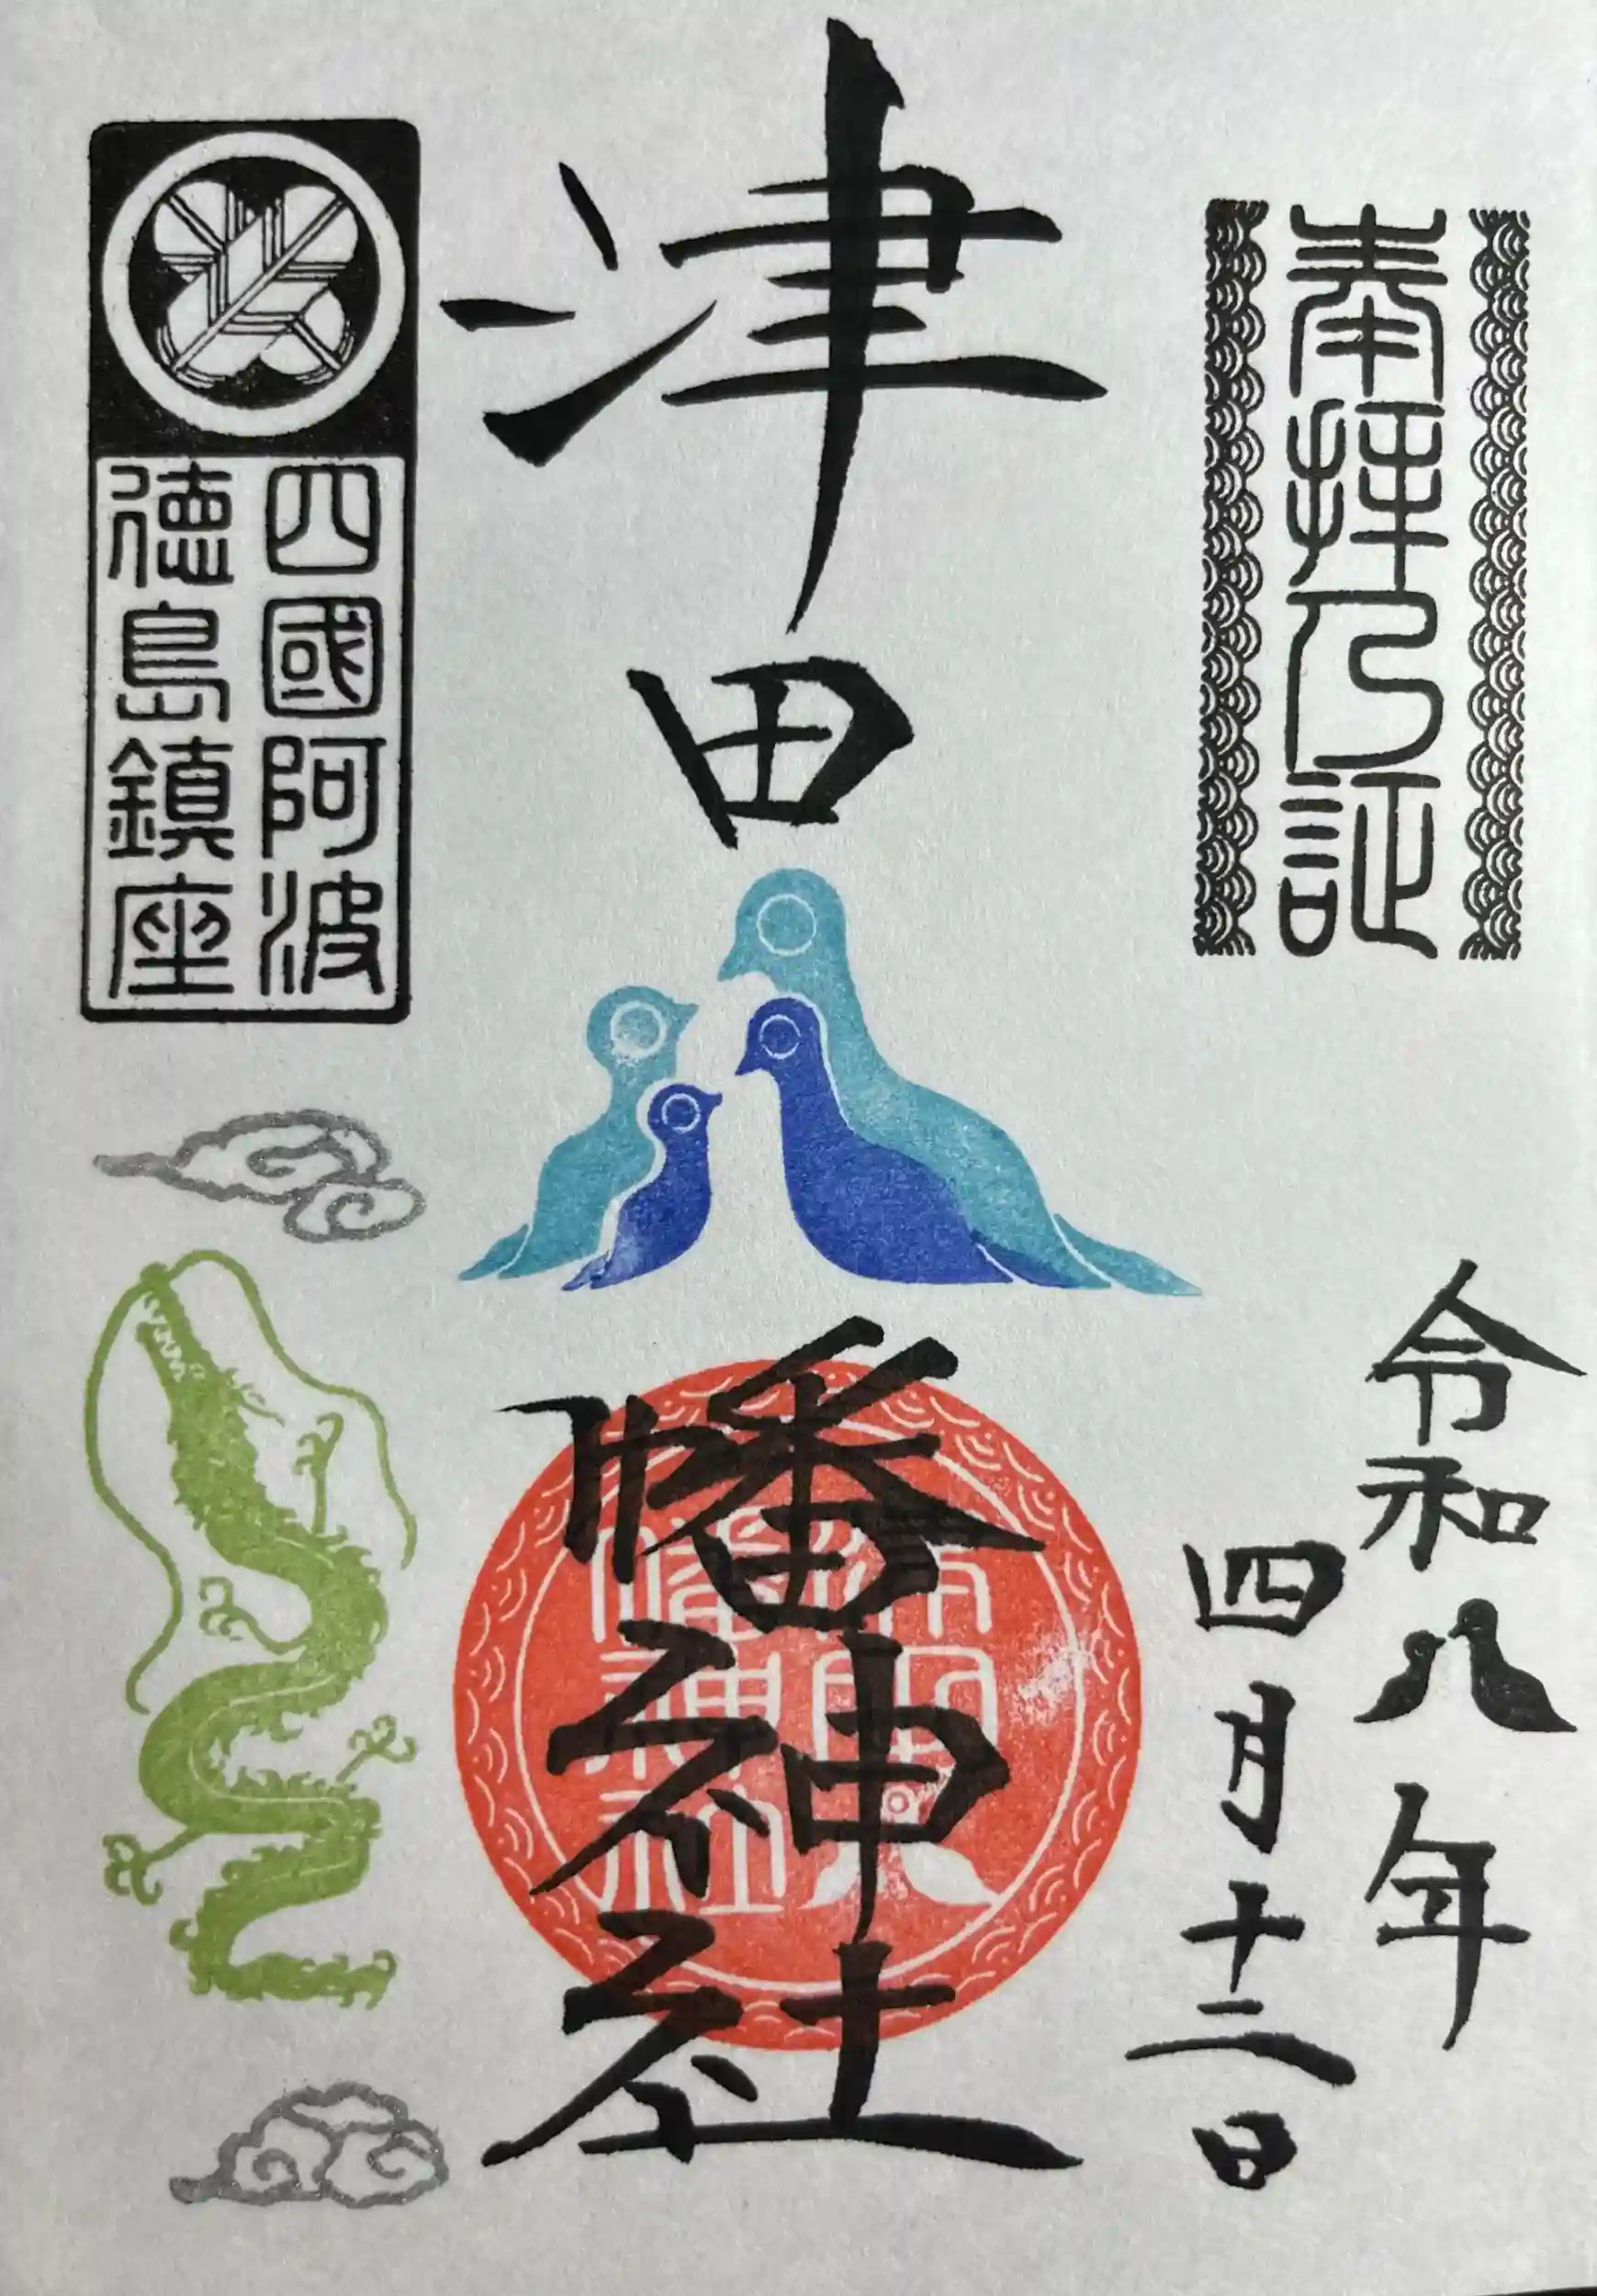 奉拝乃証
令和八年
四月十二日
津田八幡神社
津田八
幡神社
四國阿波
徳島鎮座